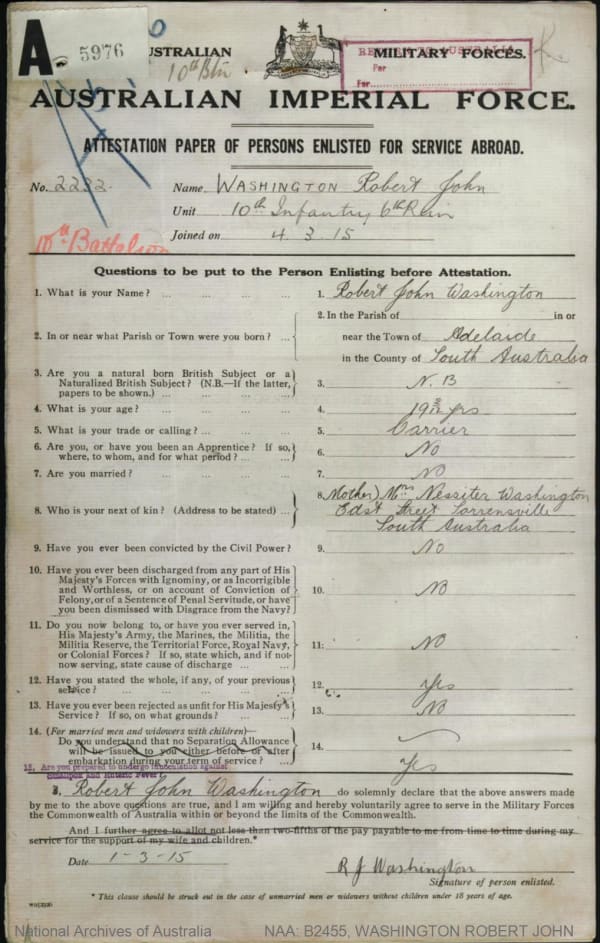 A. 5976 AUSTRALIAN MILITARY FORCES.
10th Btn RETURN TO AUSTRALIA
Per
For
AUSTRALIAN IMPERIAL FORCE.
ATTESTATION PAPER OF PERSONS ENLISTED FOR SERVICE ABROAD.
No. 2232 Name WASHINGTON Robert John
Unit 10th Infantry 6th Rein
Joined on 4.3.15
10th Battalion
Questions to be put to the Person Enlisting before Attestation.
1. What is your Name? ... ... ... ... 1. Robert John Washington
2. In or near what Parish or Town were you born? ... 2. In the Parish of in or
near the Town of Adelaide
in the County of South Australia
3. Are you a natural born British Subject or a
Naturalized British Subject? (N.B.—If the latter,
papers to be shown.) ... ... ... 3. N.B
4. What is your age? ... ... ... ... 4. 19 3/12 yrs
5. What is your trade or calling? ... ... ... 5. Carrier
6. Are you, or have you been an Apprentice? If so,
where, to whom, and for what period? ... ... 6. No
7. Are you married? ... ... ... ... 7. NO
8. Who is your next of kin? (Address to be stated) ... 8. Mother) Mrs Nessiter Washington
East Street Torrensville
South Australia
9. Have you ever been convicted by the Civil Power? 9. No
10. Have you ever been discharged from any part of His
Majesty's Forces with Ignominy, or as Incorrigible
and Worthless, or on account of Conviction of
Felony, or of a Sentence of Penal Servitude, or have
you been dismissed with Disgrace from the Navy? 10. NO
11. Do you now belong to, or have you ever served in,
His Majesty's Army, the Marines, the Militia, the
Militia Reserve, the Territorial Force, Royal Navy,
or Colonial Forces? If so, state which, and if not
now serving, state cause of discharge ... ... 11. NO
12. Have you stated the whole, if any, of your previous
service? ... ... ... ... 12. Yes
13. Have you ever been rejected as unfit for His Majesty's
Service? If so, on what grounds? ... ... 13. NO
14. (For married men and widowers with children)—
Do you understand that no Separation Allowance
will be issued to you either before or after
embarkation during your term of service? ... 14.
15. Are you prepared to undergo inoculation against
Smallpox and Enteric Fever? Yes
I, Robert John Washington do solemnly declare that the above answers made
by me to the above questions are true, and I am willing and hereby voluntarily agree to serve in the Military Forces
the Commonwealth of Australia within or beyond the limits of the Commonwealth.
And I further agree to allot not less than two-fifths of the pay payable to me from time to time during my
service for the support of my wife and children.*
Date 1-3-15
R J Washington
Signature of person enlisted.
* This clause should be struck out in the case of unmarried men or widowers without children under 18 years of age.
National Archives of Australia NAA: B2455, WASHINGTON ROBERT JOHN